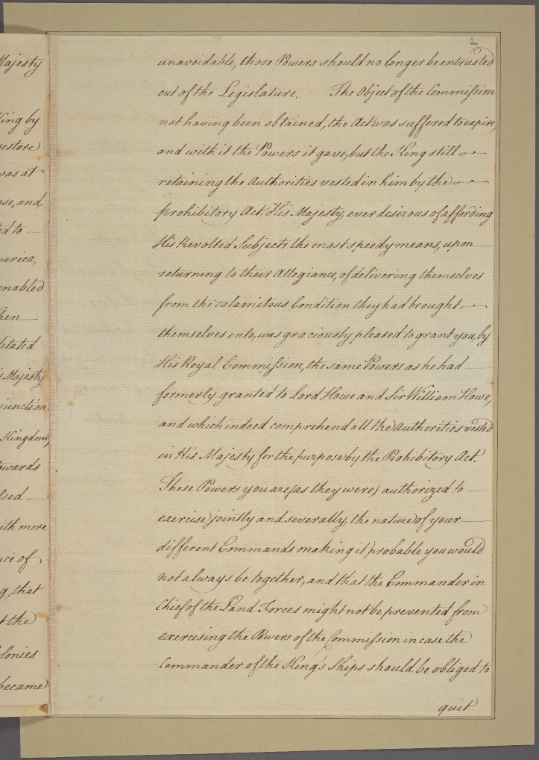 2
unavoidable, those Powers should no longer be entrusted
out of the Legislature. The Object of the Commission
not having been obtained, the Act was suffered to expire,
and with it the Powers it gave, but the King still
retaining the Authorities vested in him by the
prohibitory Act, His Majesty, ever desirous of affording
His Revolted Subjects the most speedy means, upon
returning to their Allegiance, of delivering themselves
from the calamitous Condition they had brought
themselves into, was graciously pleased to grant you, by
His Royal Commission, the same Powers as he had
formerly granted to Lord Howe and Sir William Howe,
and which indeed comprehend all the Authorities vested
in His Majesty for the purpose by the Prohibitory Act.
These Powers you are (as they were) authorized to
exercise jointly and severally, the nature of your
different Commands making it probable you would
not always be together, and that the Commander in
Chief of the Land Forces might not be prevented from
exercising the Powers of the Commission in case the
Commander of the King's Ships should be obliged to
quit
Majesty
King by
restore
was at
se, and
ed to
merica,
enabled
hen
ditated
s Majesty
junction
Kingdom,
owards
lsed
with more
nce of
g, that
t the
olonies
became